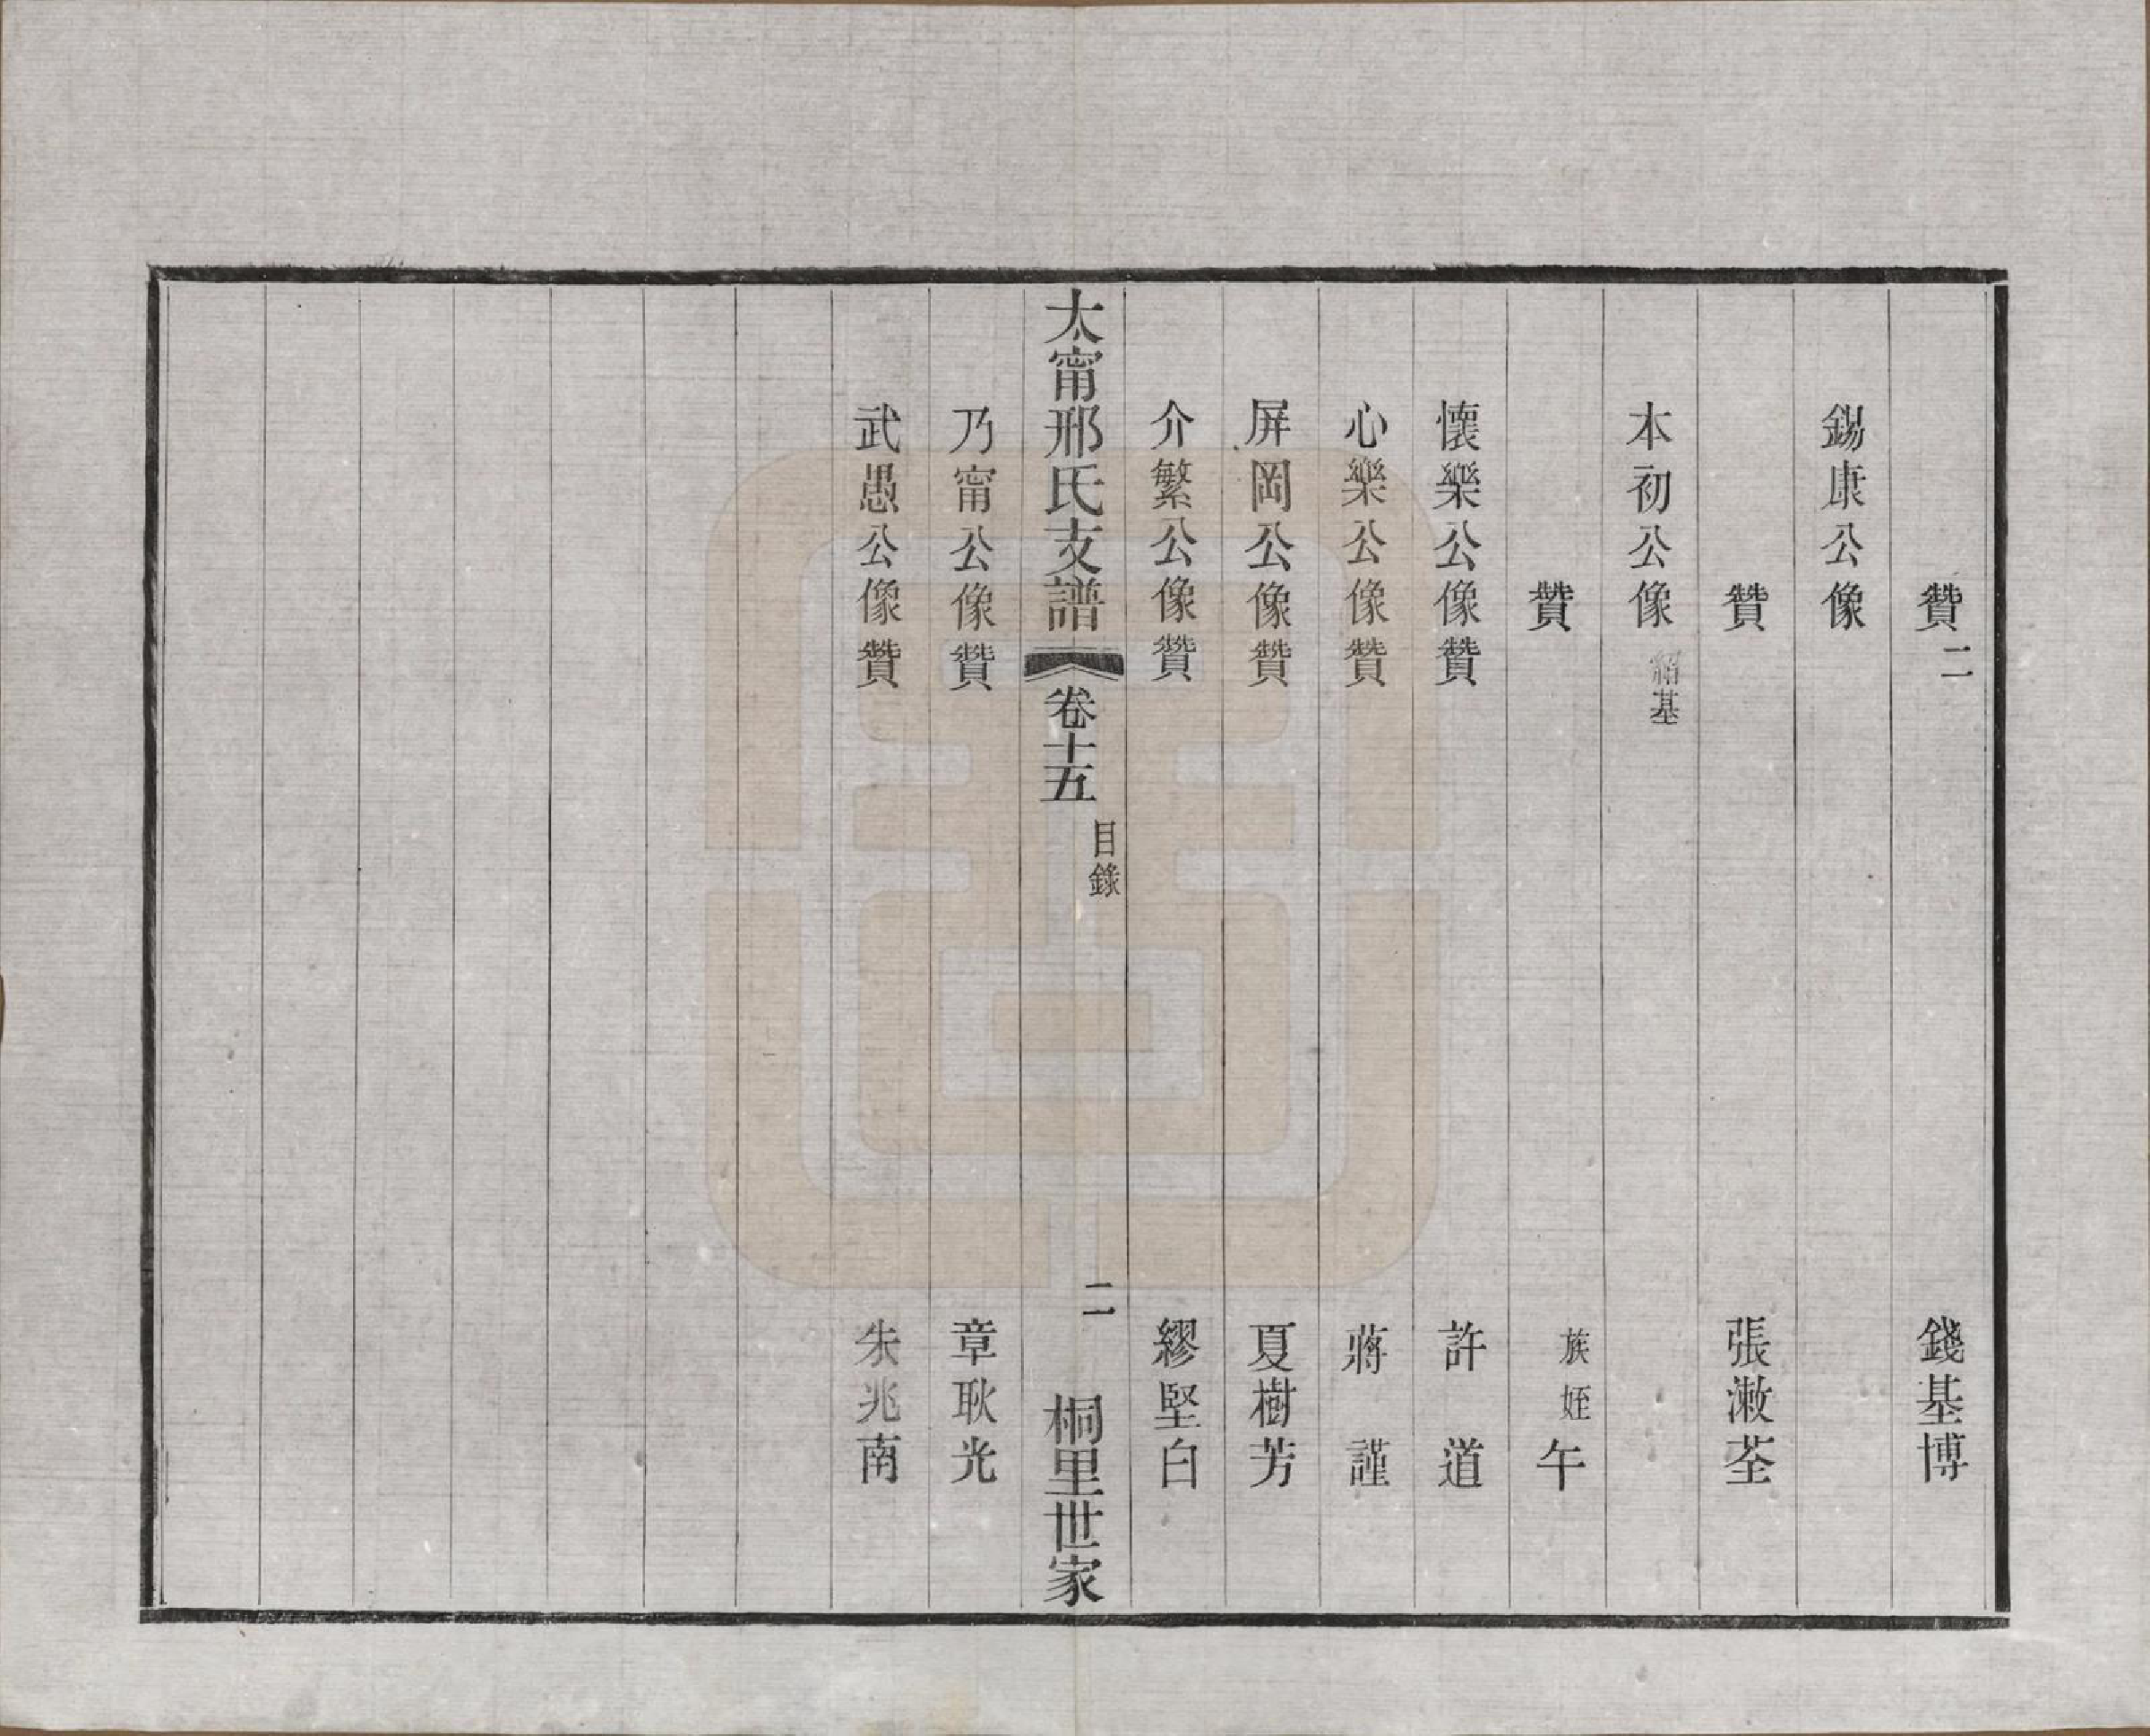 贊二 錢基博
錫康公像
贊 張漱荃
本初公像紹基
贊 族姪午
懷樂公像贊 許道
心樂公像贊 蔣謹
屏岡公像贊 夏樹芳
介繁公像贊 繆堅白
太甯邢氏支譜 卷十五 目錄 二 桐里世家
乃甯公像贊 章耿光
武愚公像贊 朱兆南